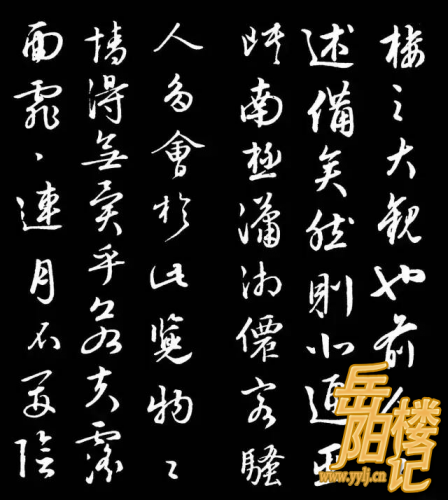 楼之大觀也前人
述備矣然則北通巫
峽南極瀟湘僊客騷
人多會於此覽物之
情得無異乎若夫霪
雨霏〻連月不開陰
岳阳楼记
www.yylj.cn